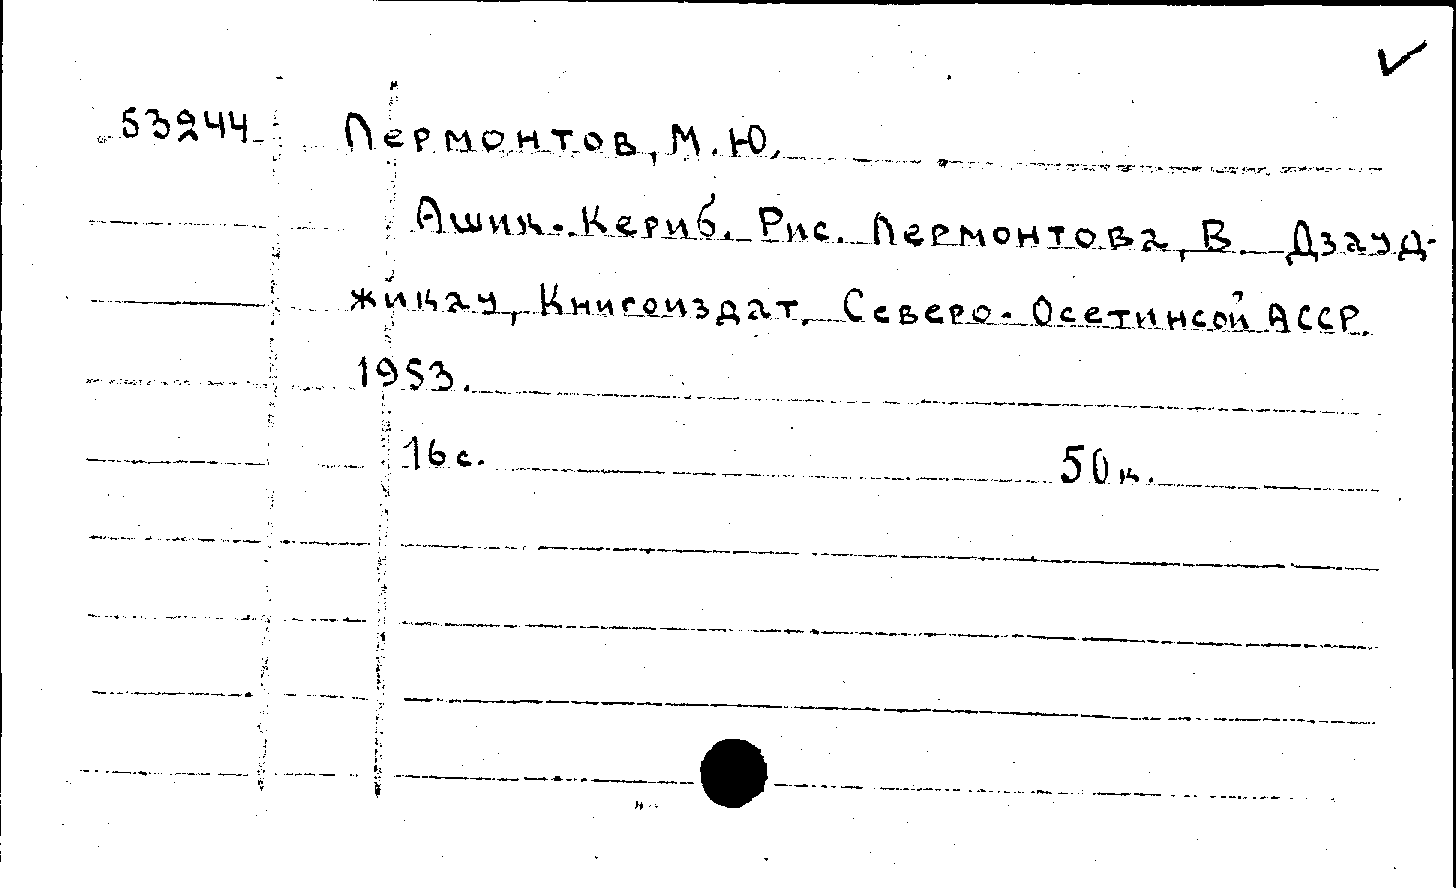 53244 Лермонтов, М. Ю.
Ашик-Кериб. Рис. Лермонтова, В. Дзауд-
жикау, Книгоиздат, Северо-Осетинсой АССР.
1953.
16 с. 50 к.